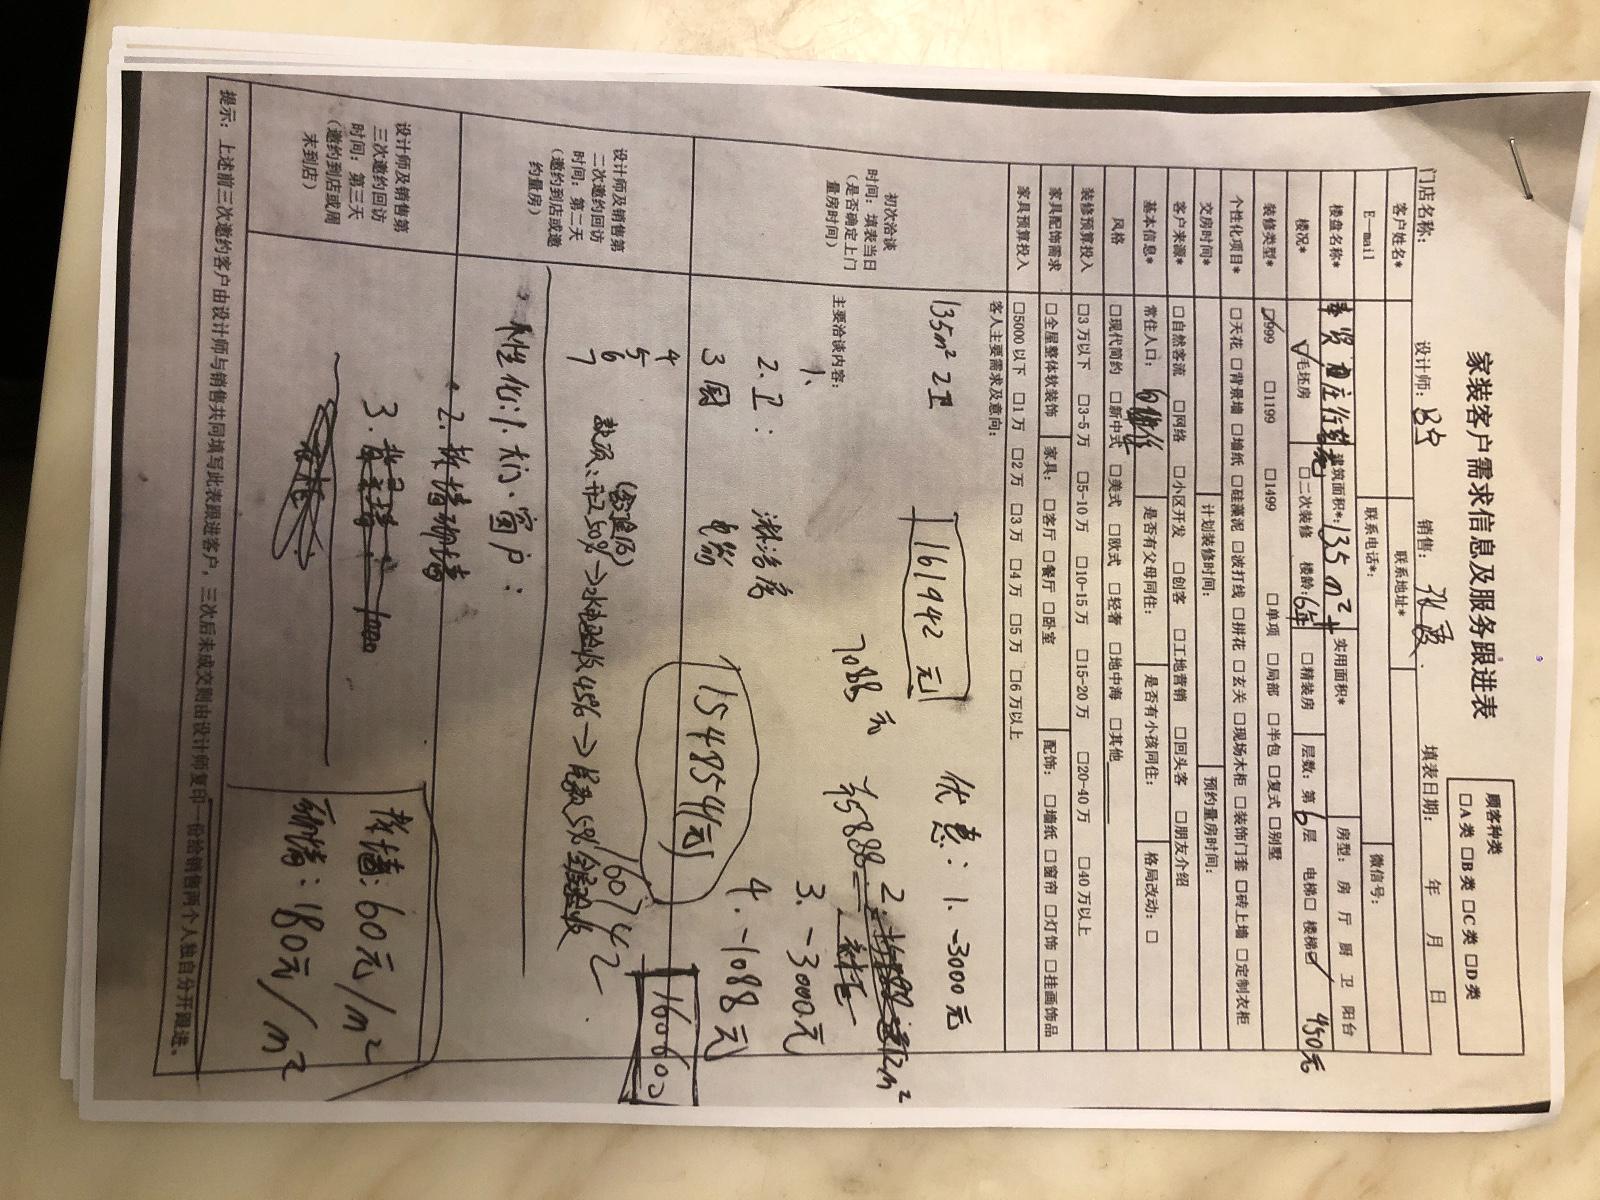 家装客户需求信息及服务跟进表
顾客种类
□A类 □B类 □C类 □D类
门店名称: 设计师: 销售: 张霞. 填表日期: 年 月 日
客户姓名* 联系地址*
E-mail 联系电话*: 微信号:
楼盘名称* 奉贤 建筑面积*: 135m² 实用面积* 房型: 房 厅 厨 卫 阳台
楼况* ☑毛坯房 □二次装修 楼龄: 6年 □精装房 层数: 第6层 电梯□ 楼梯☑ 450元
装修类型* ☑999 □1199 □1499 □单项 □局部 □半包 □复式 □别墅
个性化项目* □天花 □背景墙 □墙纸 □硅藻泥 □波打线 □拼花 □玄关 □现场木柜 □装饰门套 □砖上墙 □定制衣柜
交房时间* 计划装修时间: 预约量房时间:
客户来源* □自然客流 □网络 □小区开发 □创客 □工地营销 □回头客 □朋友介绍
基本信息* 常住人口: 是否有父母同住: 是否有小孩同住: 格局改动: □
风格 □现代简约 □新中式 □美式 □欧式 □轻奢 □地中海 □其他
装修预算投入 □3万以下 □3-5万 □5-10万 □10-15万 □15-20万 □20-40万 □40万以上
家具配饰需求 □全屋整体软装饰 家具: □客厅 □餐厅 □卧室 配饰: □墙纸 □窗帘 □灯饰 □挂画饰品
家具预算投入 □5000以下 □1万 □2万 □3万 □4万 □5万 □6万以上
初次洽谈
时间: 填表当日
(是否确定上门
量房时间)
客人主要需求及意向:
135m² 2卫
161942元
优惠: 1. -3000元
7088元
2.
12m²
主要洽谈内容:
1、
2.卫: 淋浴房
3厨 电器
3. -3000元
4. -1088元
154854元
4
5
6
7
160742
160600
设计师及销售第
二次邀约回访
时间: 第二天
(邀约到店或邀
约量房)
→水电验收45%→尾款5%
个性化: 1.大门.窗户:
2.新墙砌墙
设计师及销售第
三次邀约回访
时间: 第三天
(邀约到店或周
末到店)
3.
拆墙: 60元/m²
砌墙: 180元/m²
提示: 上述前三次邀约客户由设计师与销售共同填写此表跟进客户, 三次后未成交则由设计师复印一份给销售两个人独自分开跟进。